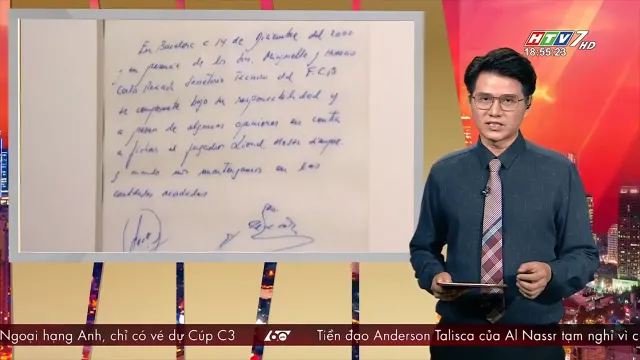 En Barcelona a 14 de diciembre del 2000
y en presencia de los Srs. Minguella y Horacio
Carles Rexach Secretario Técnico del F.C.B
se compromete bajo su responsabilidad y
a pesar de algunas opiniones en contra
a fichar al jugador Lionel Messi siempre
y cuando nos mantengamos en las
cantidades acordadas
HTV7 HD
18:55:23
Ngoại hạng Anh, chỉ có vé dự Cúp C3
60
Tiền đạo Anderson Talisca của Al Nassr tạm nghỉ vì c